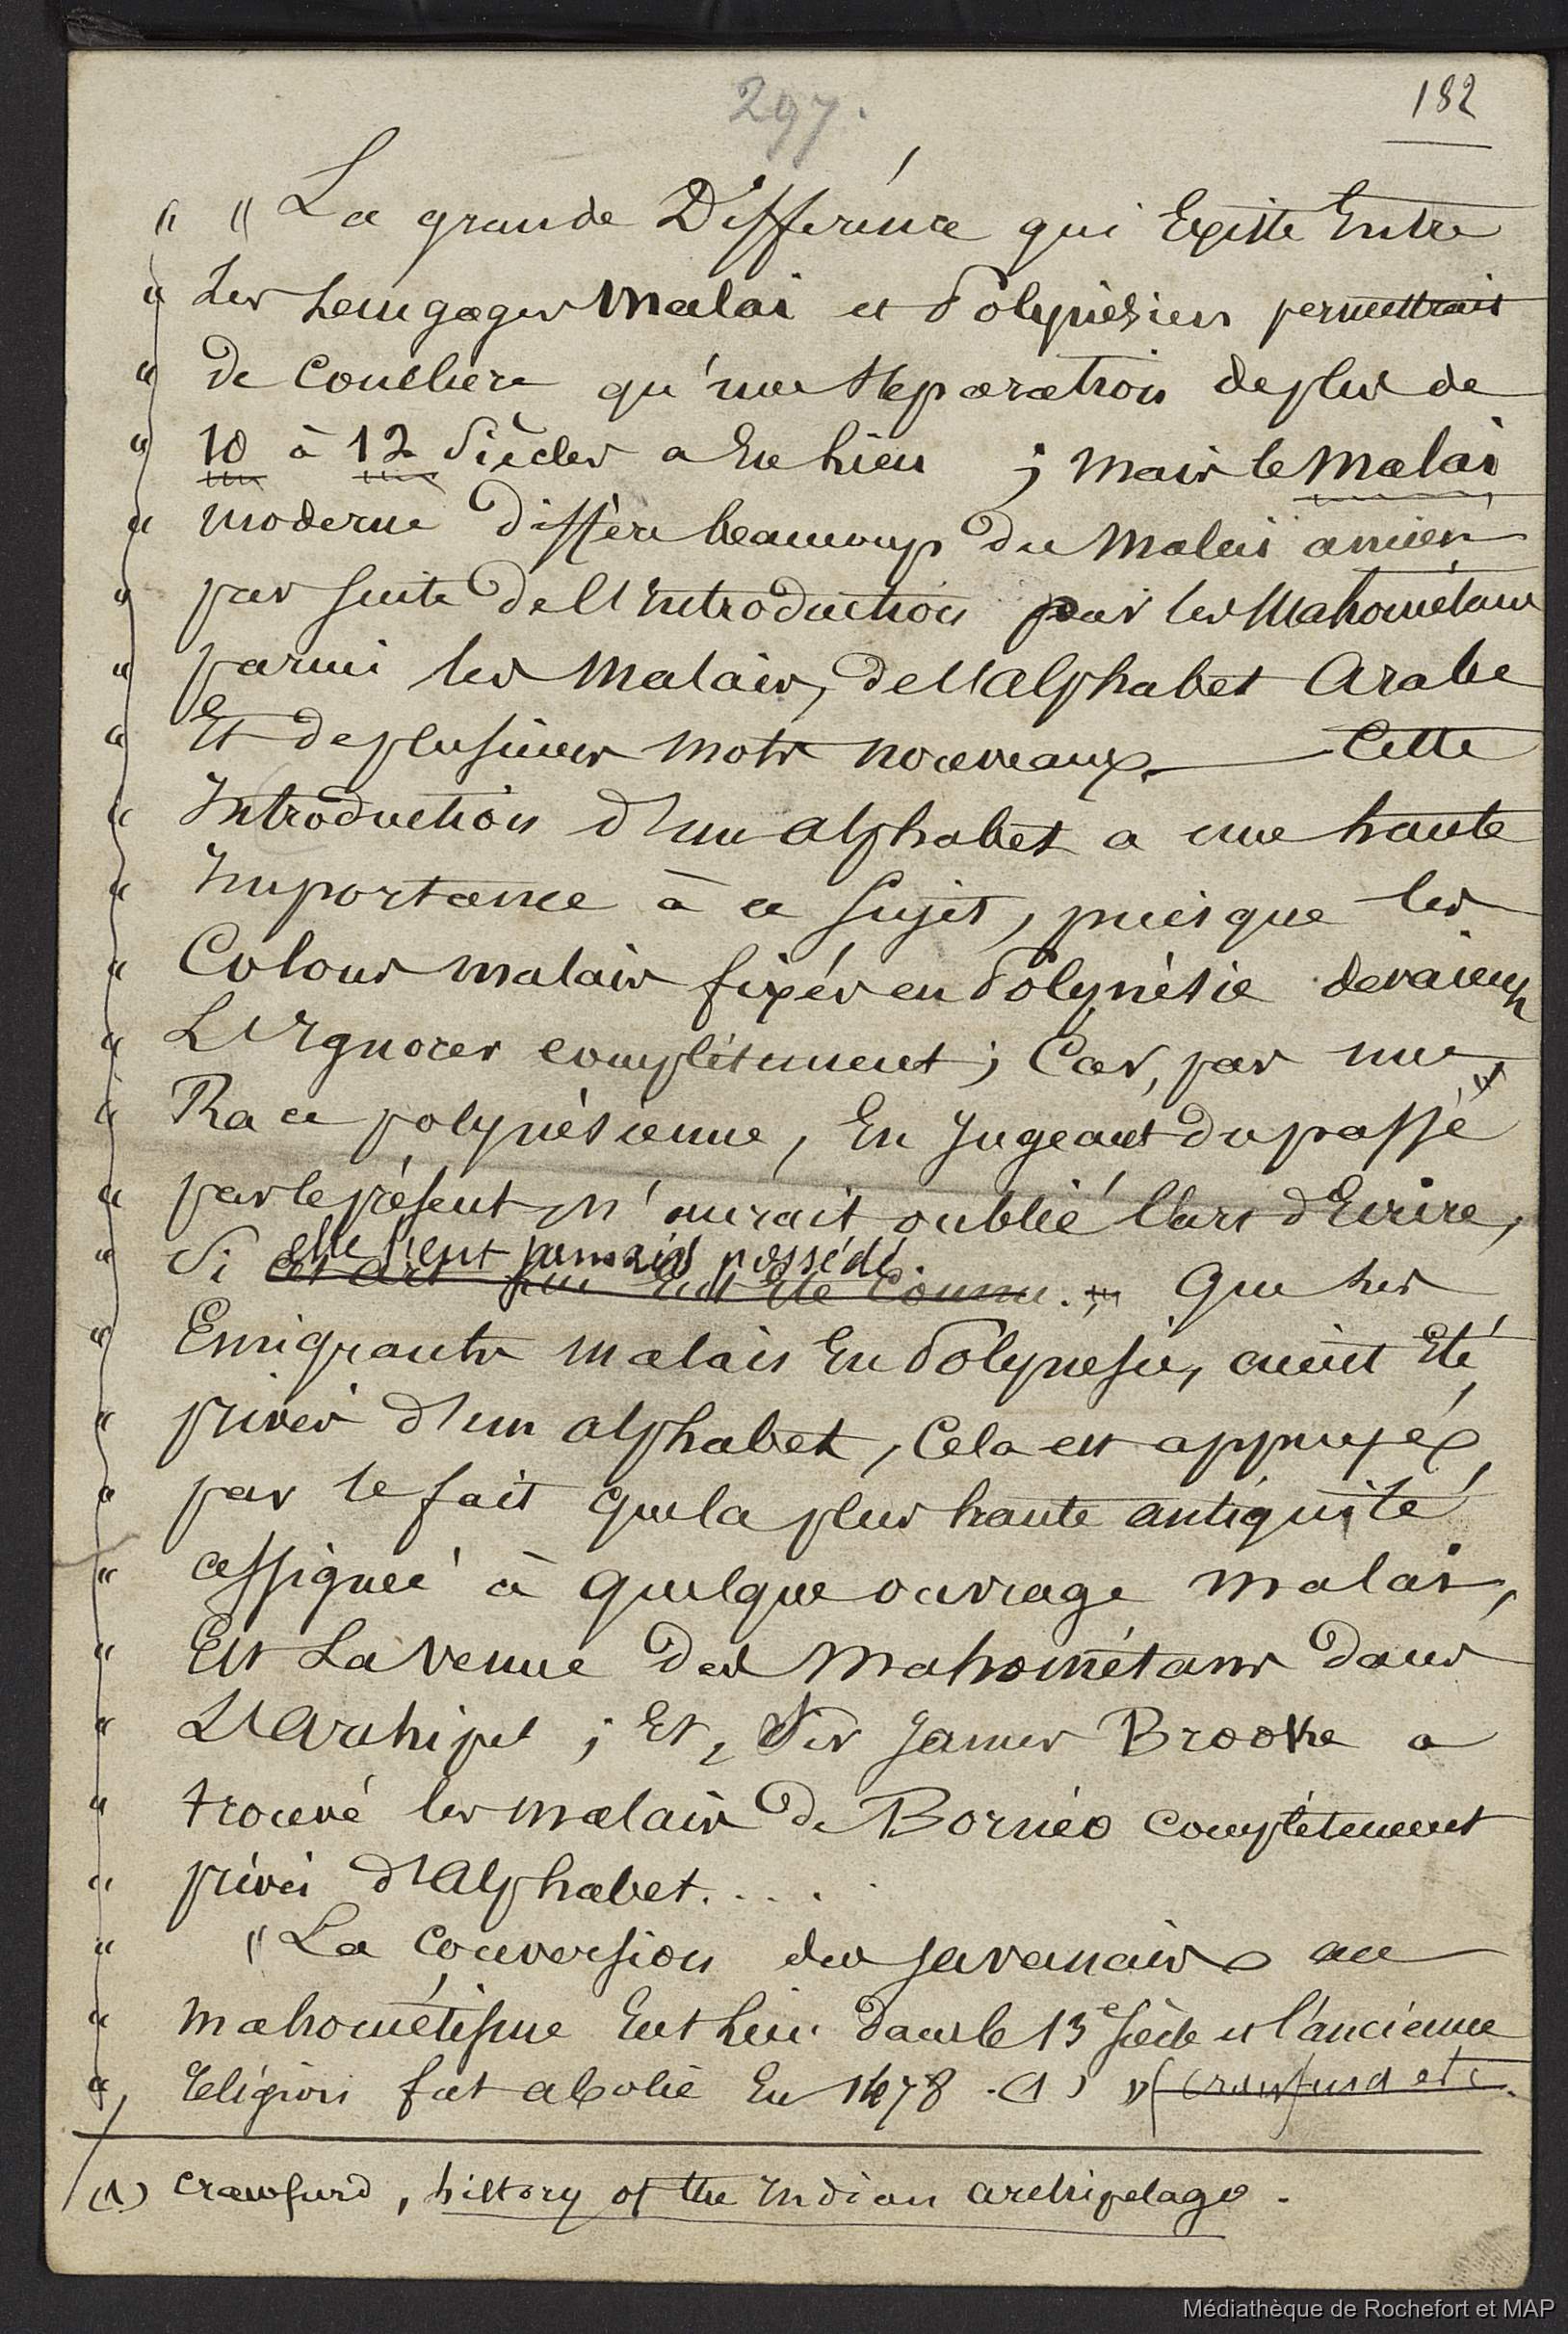 297.
182
" " La grande Différence qui Existe Entre
" Les Langages Malai et Polynésien permettrait
" De Conclure qu'une Séparation de plus de
" 10 à 12 Siècles a Eu lieu ; Mais le Malai
" moderne Diffère beaucoup Du Malai ancien
" par suite De l'Introduction par les Mahométans
" parmi les Malais, De l'alphabet Arabe
" Et De plusieurs mots nouveaux. — Cette
" Introduction D'un alphabet a une haute
" Importance à ce Sujet, puisque les
" Colons malais fixés en Polynésie devaient
" L'Ignorer complétement ; Car, pas une
" Race polynésienne, En Jugeant Du passé
" par le présent, n'aurait oublié l'art d'Ecrire,
" Si elle l'eut jamais possédé. Que les
" Emigrants malais En Polynésie, aient Eté
" privés D'un alphabet, Cela est appuyé
" par le fait que la plus haute antiquité
" assignée à quelque ouvrage malai,
" Est La venue Des Mahométans Dans
" L'Archipel ; Et, Sir James Brooke a
" trouvé les malais De Bornéo complétement
" privés D'Alphabet. . . . .
" " La Conversion des Javanais au
" mahométisme Eut lieu Dans le 13e Siècle et l'ancienne
" Religion fut abolie En 1478 . (1) » (Crawfurd etc.
(1) Crawfurd, history of the Indian archipelago.
Médiathèque de Rochefort et MAP